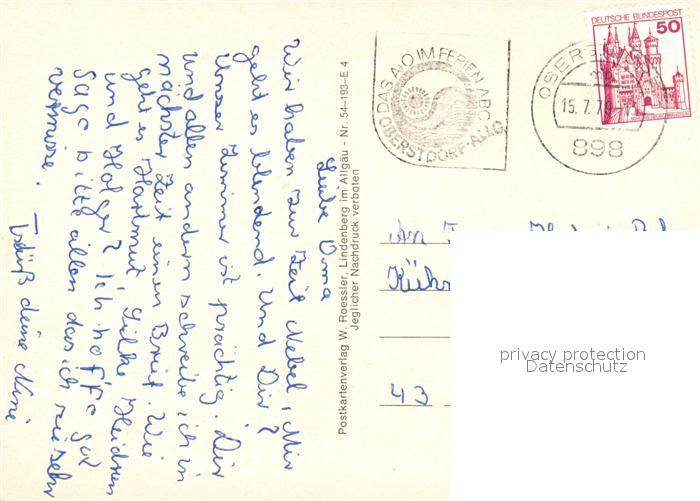 Liebe Oma
Wir haben zur Zeit Nebel. Mir
geht es blendend. Und Dir?
Unser Zimmer ist prächtig. Dir
und allen andern schreibe ich in
nächster Zeit einen Brief. Wie
geht es Hartmut Silke Heidrun
und Holger? Ich hoffe gut
Sage bitte allen das ich sie sehr
vermisse.
Tschüß deine
Postkartenverlag W. Roessler, Lindenberg im Allgäu - Nr. 54-193-E 4
Jeglicher Nachdruck verboten
DAS A·O IM FERIEN ABC
OBERSTDORF-ALLG.
DEUTSCHE BUNDESPOST
50
15.7.79
898
An
43
privacy protection
Datenschutz